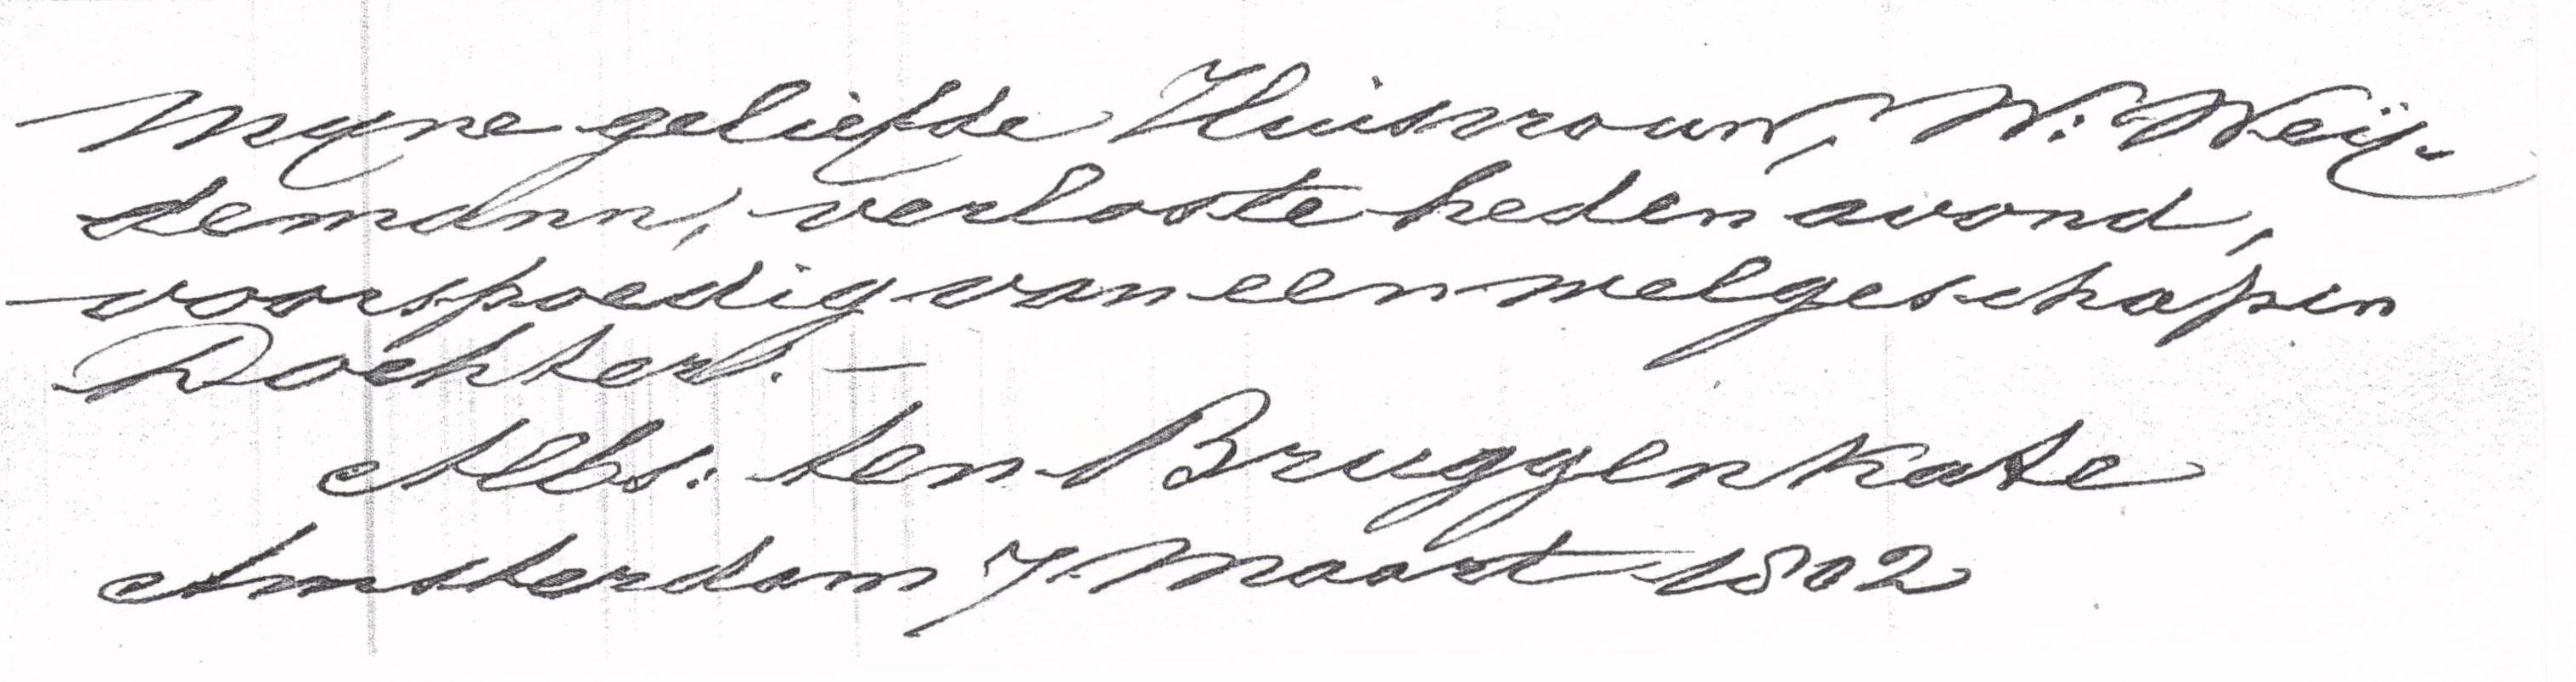 Myne geliefde Huisvrouw, W: Weÿ-
demann, verloste heden avond,
voorspoedig van een welgeschapen
Dochter. —
Albs: ten Bruggenkate
Amsterdam 7 Maart 1802